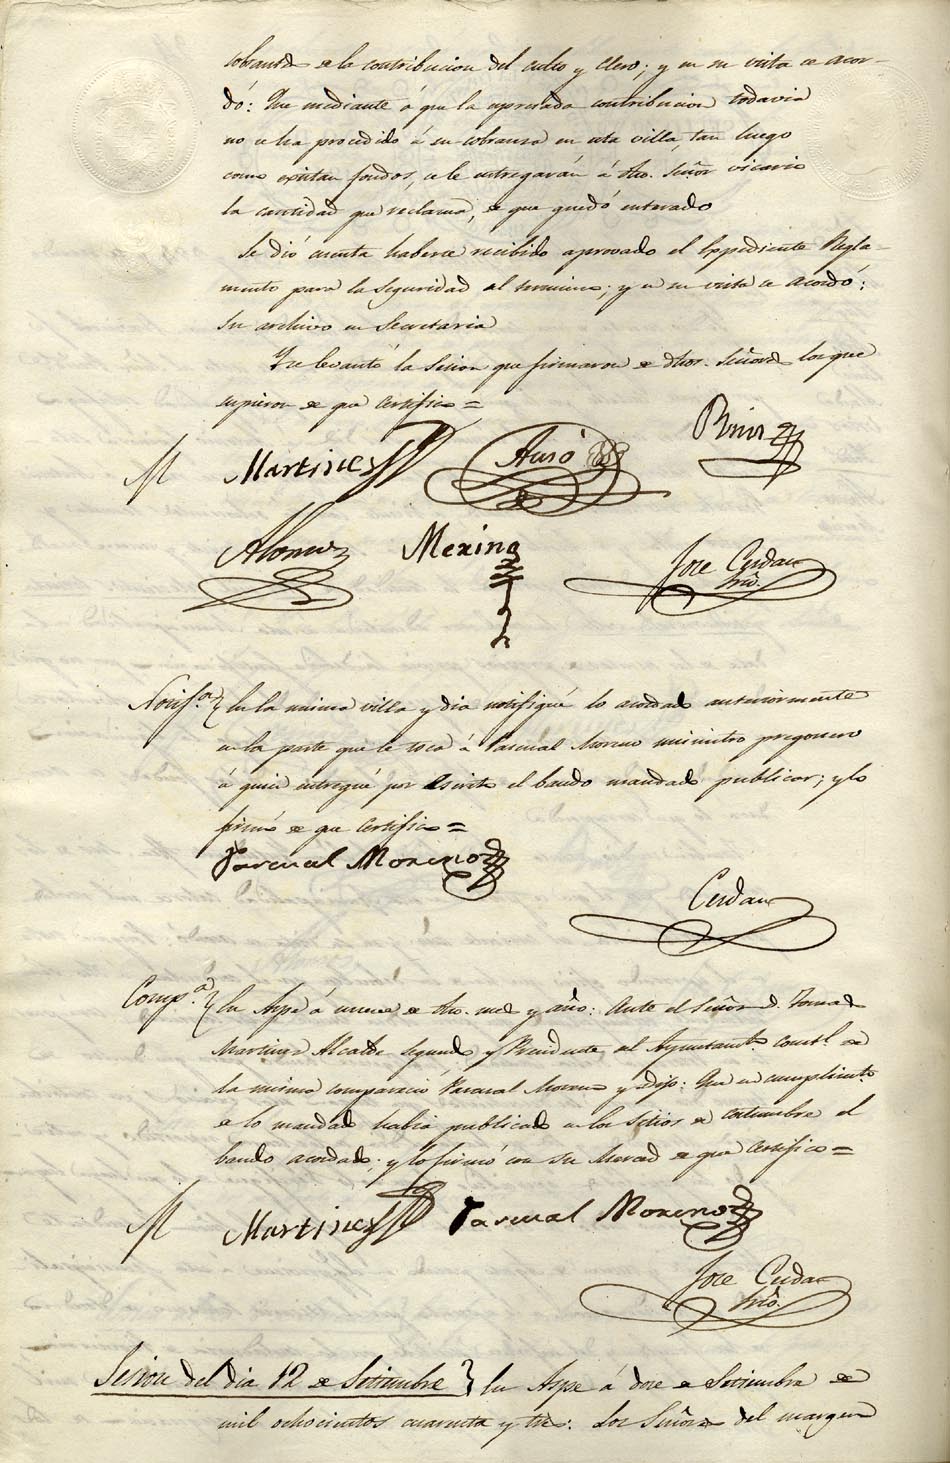 cobranza de la contribucion del culto y clero; y en su vista se acor-
dó: Que mediante á que la apresada contribucion todavia
no se ha procedido á su cobranza en esta villa, tan luego
como existan fondos, se le entregarán á dho. Señor vicario
la cantidad que reclama, de que quedó enterado
Se dió cuenta haberse recibido aprovado el Expediente Regla-
mento para la seguridad del termino; y en su vista se acordó:
su archivo en Secretaria
Y se levantó la sesion que firmaron de dhos. Señores los que
supieron de que certifico =
Martinez
Auró
Alonso
Merino
Jose Cerdan
Srio.
Notif.ᵃ } En la misma villa y dia notifiqué lo acordado anteriormente
en la parte que le toca á Pascual Moreno ministro pregonero
á quien entregué por escrito el bando mandado publicar; y lo
firmó de que certifico =
Pascual Moreno
Cerdan
Comp.ᵃ } En Aspe á once de dho. mes y año: Ante el Señor D. Tomas
Martinez Alcalde segundo y Presidente del Ayuntamto. constl. de
la misma compareció Pascual Moreno y dijo: Que en cumplimto.
de lo mandado habia publicado en los sitios de costumbre el
bando acordado; y lo firmó con su Merced de que certifico =
Martinez
Pascual Moreno
Jose Cerdan
Srio.
Sesion del dia 12 de Setiembre } En Aspe á doce de Setiembre de
mil ochocientos cuarenta y tres: Los Señores del margen